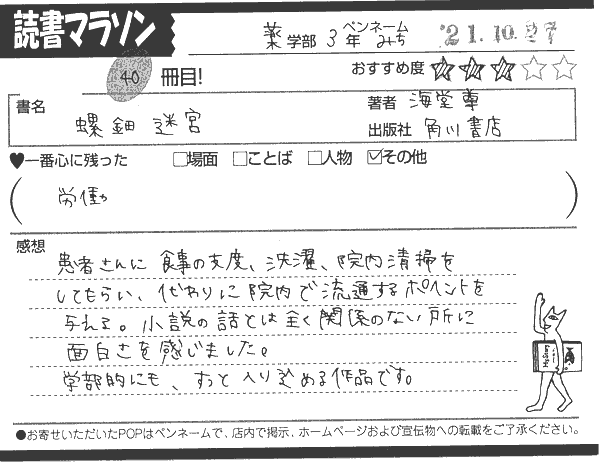 読書マラソン
薬学部 3年 ペンネーム みち '21.10.27
40 冊目!
おすすめ度 ★★★☆☆
書名 螺鈿迷宮
著者 海堂尊
出版社 角川書店
♥一番心に残った □場面 □ことば □人物 ☑その他
(労働)
感想
患者さんに食事の支度、洗濯、院内清掃を
してもらい、代わりに院内で流通するポイントを
与える。小説の話とは全く関係のない所に
面白さを感じました。
学部的にも、すっと入り込める作品です。
●お寄せいただいたPOPはペンネームで、店内で掲示、ホームページおよび宣伝物への転載をご了承ください。